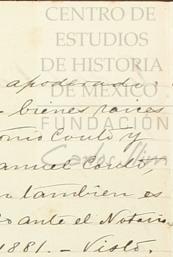 CENTRO DE
ESTUDIOS
DE HISTORIA
DE MÉXICO
apoderado
bienes raices
FUNDACIÓN
onio Couto y
Carlos Slim
anuel Couto,
tambien es
ante el Notario
1881. — Visto.